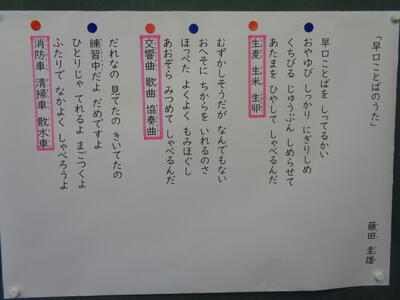 「早口ことばのうた」
藤田 圭雄
早口ことばを しってるかい
おやゆび しっかり にぎりしめ
くちびる じゅうぶん しめらせて
あたまを ひやして しゃべるんだ
生麦 生米 生卵
むずかしそうだが なんでもない
おへそに ちからを いれるのさ
ほっぺた よくよく もみほぐし
あおぞら みつめて しゃべるんだ
交響曲 歌曲 協奏曲
だれなの 見てたの きいてたの
練習中だよ だめですよ
ひとりじゃ てれるよ まごつくよ
ふたりで なかよく しゃべろうよ
消防車 清掃車 散水車